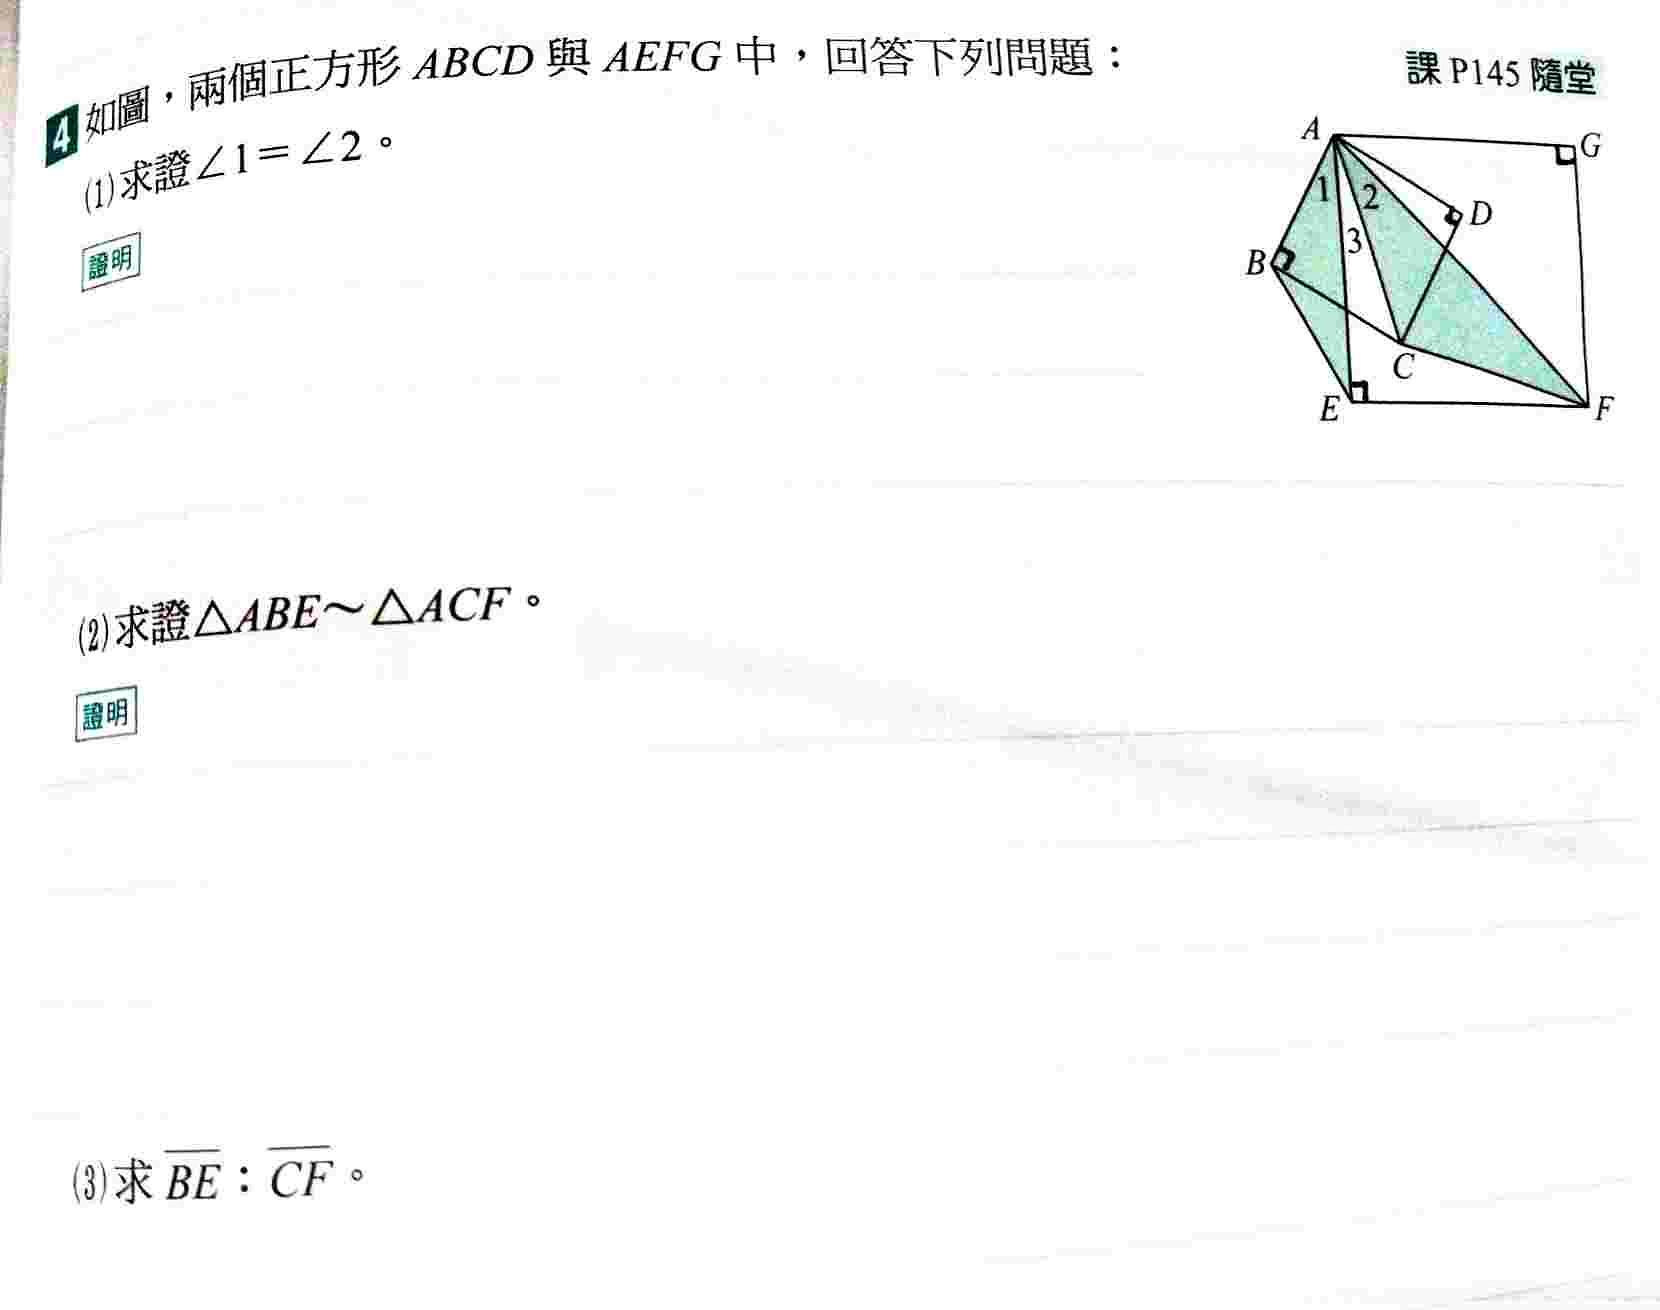 4 如圖，兩個正方形 ABCD 與 AEFG 中，回答下列問題：
課 P145 隨堂
(1)求證∠1＝∠2。
證明
A
G
1
2
D
3
B
C
E
F
(2)求證△ABE～△ACF。
證明
(3)求 \overline{BE}：\overline{CF}。